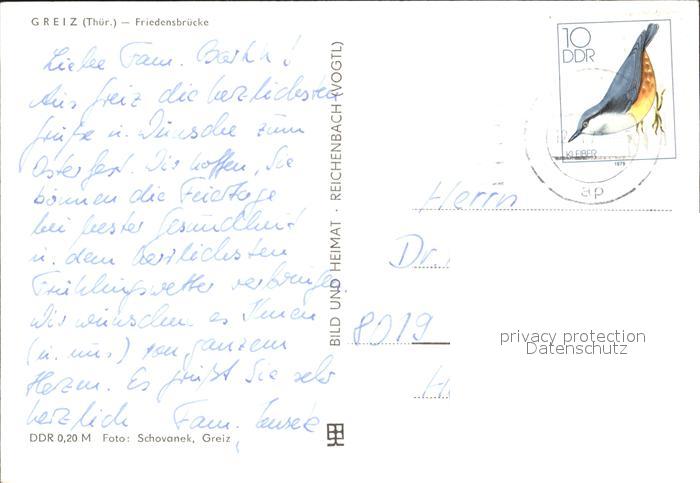 GREIZ (Thür.) — Friedensbrücke
Liebe Fam.
Aus Greiz die herzlichsten
Grüße u. Wünsche zum
Osterfest. Wir hoffen, Sie
können die Feiertage
bei bester Gesundheit
u. dem herrlichsten
Frühlingswetter verbringen.
Wir wünschen es Ihnen
(u. uns) von ganzem
Herzen. Es grüßt Sie sehr
herzlich Fam.
DDR 0,20 M Foto: Schovanek, Greiz
BILD UND HEIMAT · REICHENBACH (VOGTL)
10
DDR
KLEIBER
1979
ap
Herrn
Dr.
8019
H
privacy protection
Datenschutz